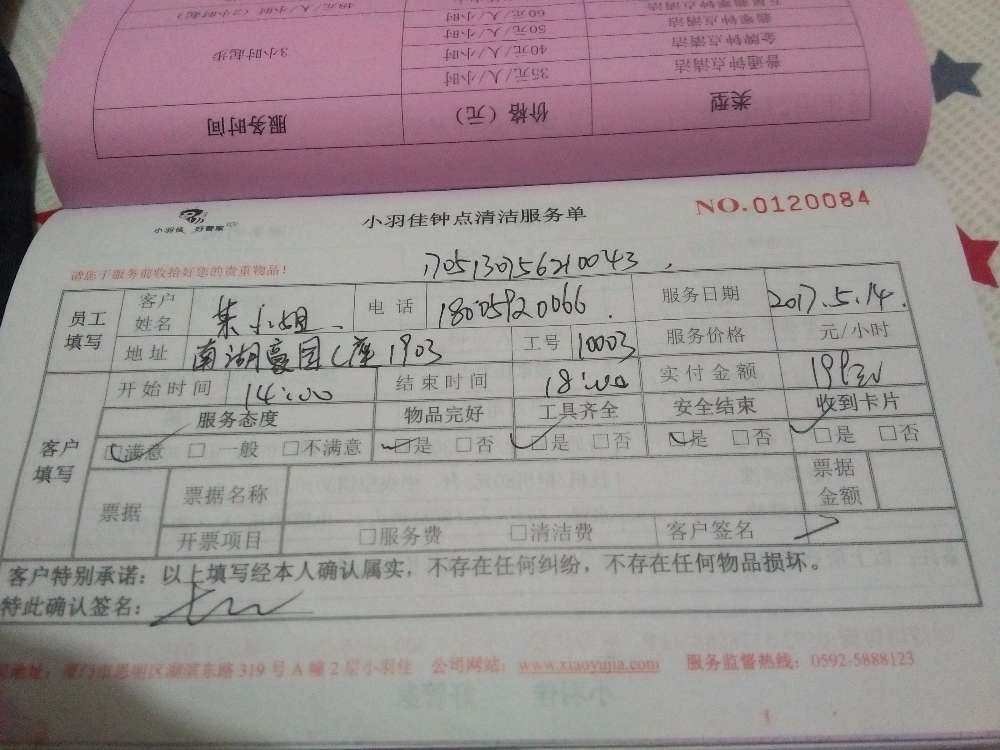 类型 价格（元） 服务时间
普通钟点清洁 35元/人/小时 3小时起步
金牌钟点清洁 40元/人/小时
翡翠钟点清洁 50元/人/小时
60元/人/小时
小羽佳 好管家
小羽佳钟点清洁服务单
NO.0120084
请您于服务前收拾好您的贵重物品！
1705130756210043
员工填写 客户姓名 小姐 电话 18005920066 服务日期 2017.5.14.
地址 南湖豪园C座1903 工号 10003 服务价格 元/小时
客户填写 开始时间 14:00 结束时间 18:00 实付金额 199元
服务态度 物品完好 工具齐全 安全结束 收到卡片
□满意 □ 一般 □不满意 □是 □否 □是 □否 □是 □否 □是 □否
票据 票据名称 票据金额
开票项目 □服务费 □清洁费 客户签名
客户特别承诺：以上填写经本人确认属实，不存在任何纠纷，不存在任何物品损坏。
特此确认签名：
地址：厦门市思明区湖滨东路319号A幢2层小羽佳 公司网站：www.xiaoyujia.com 服务监督热线：0592-5888123